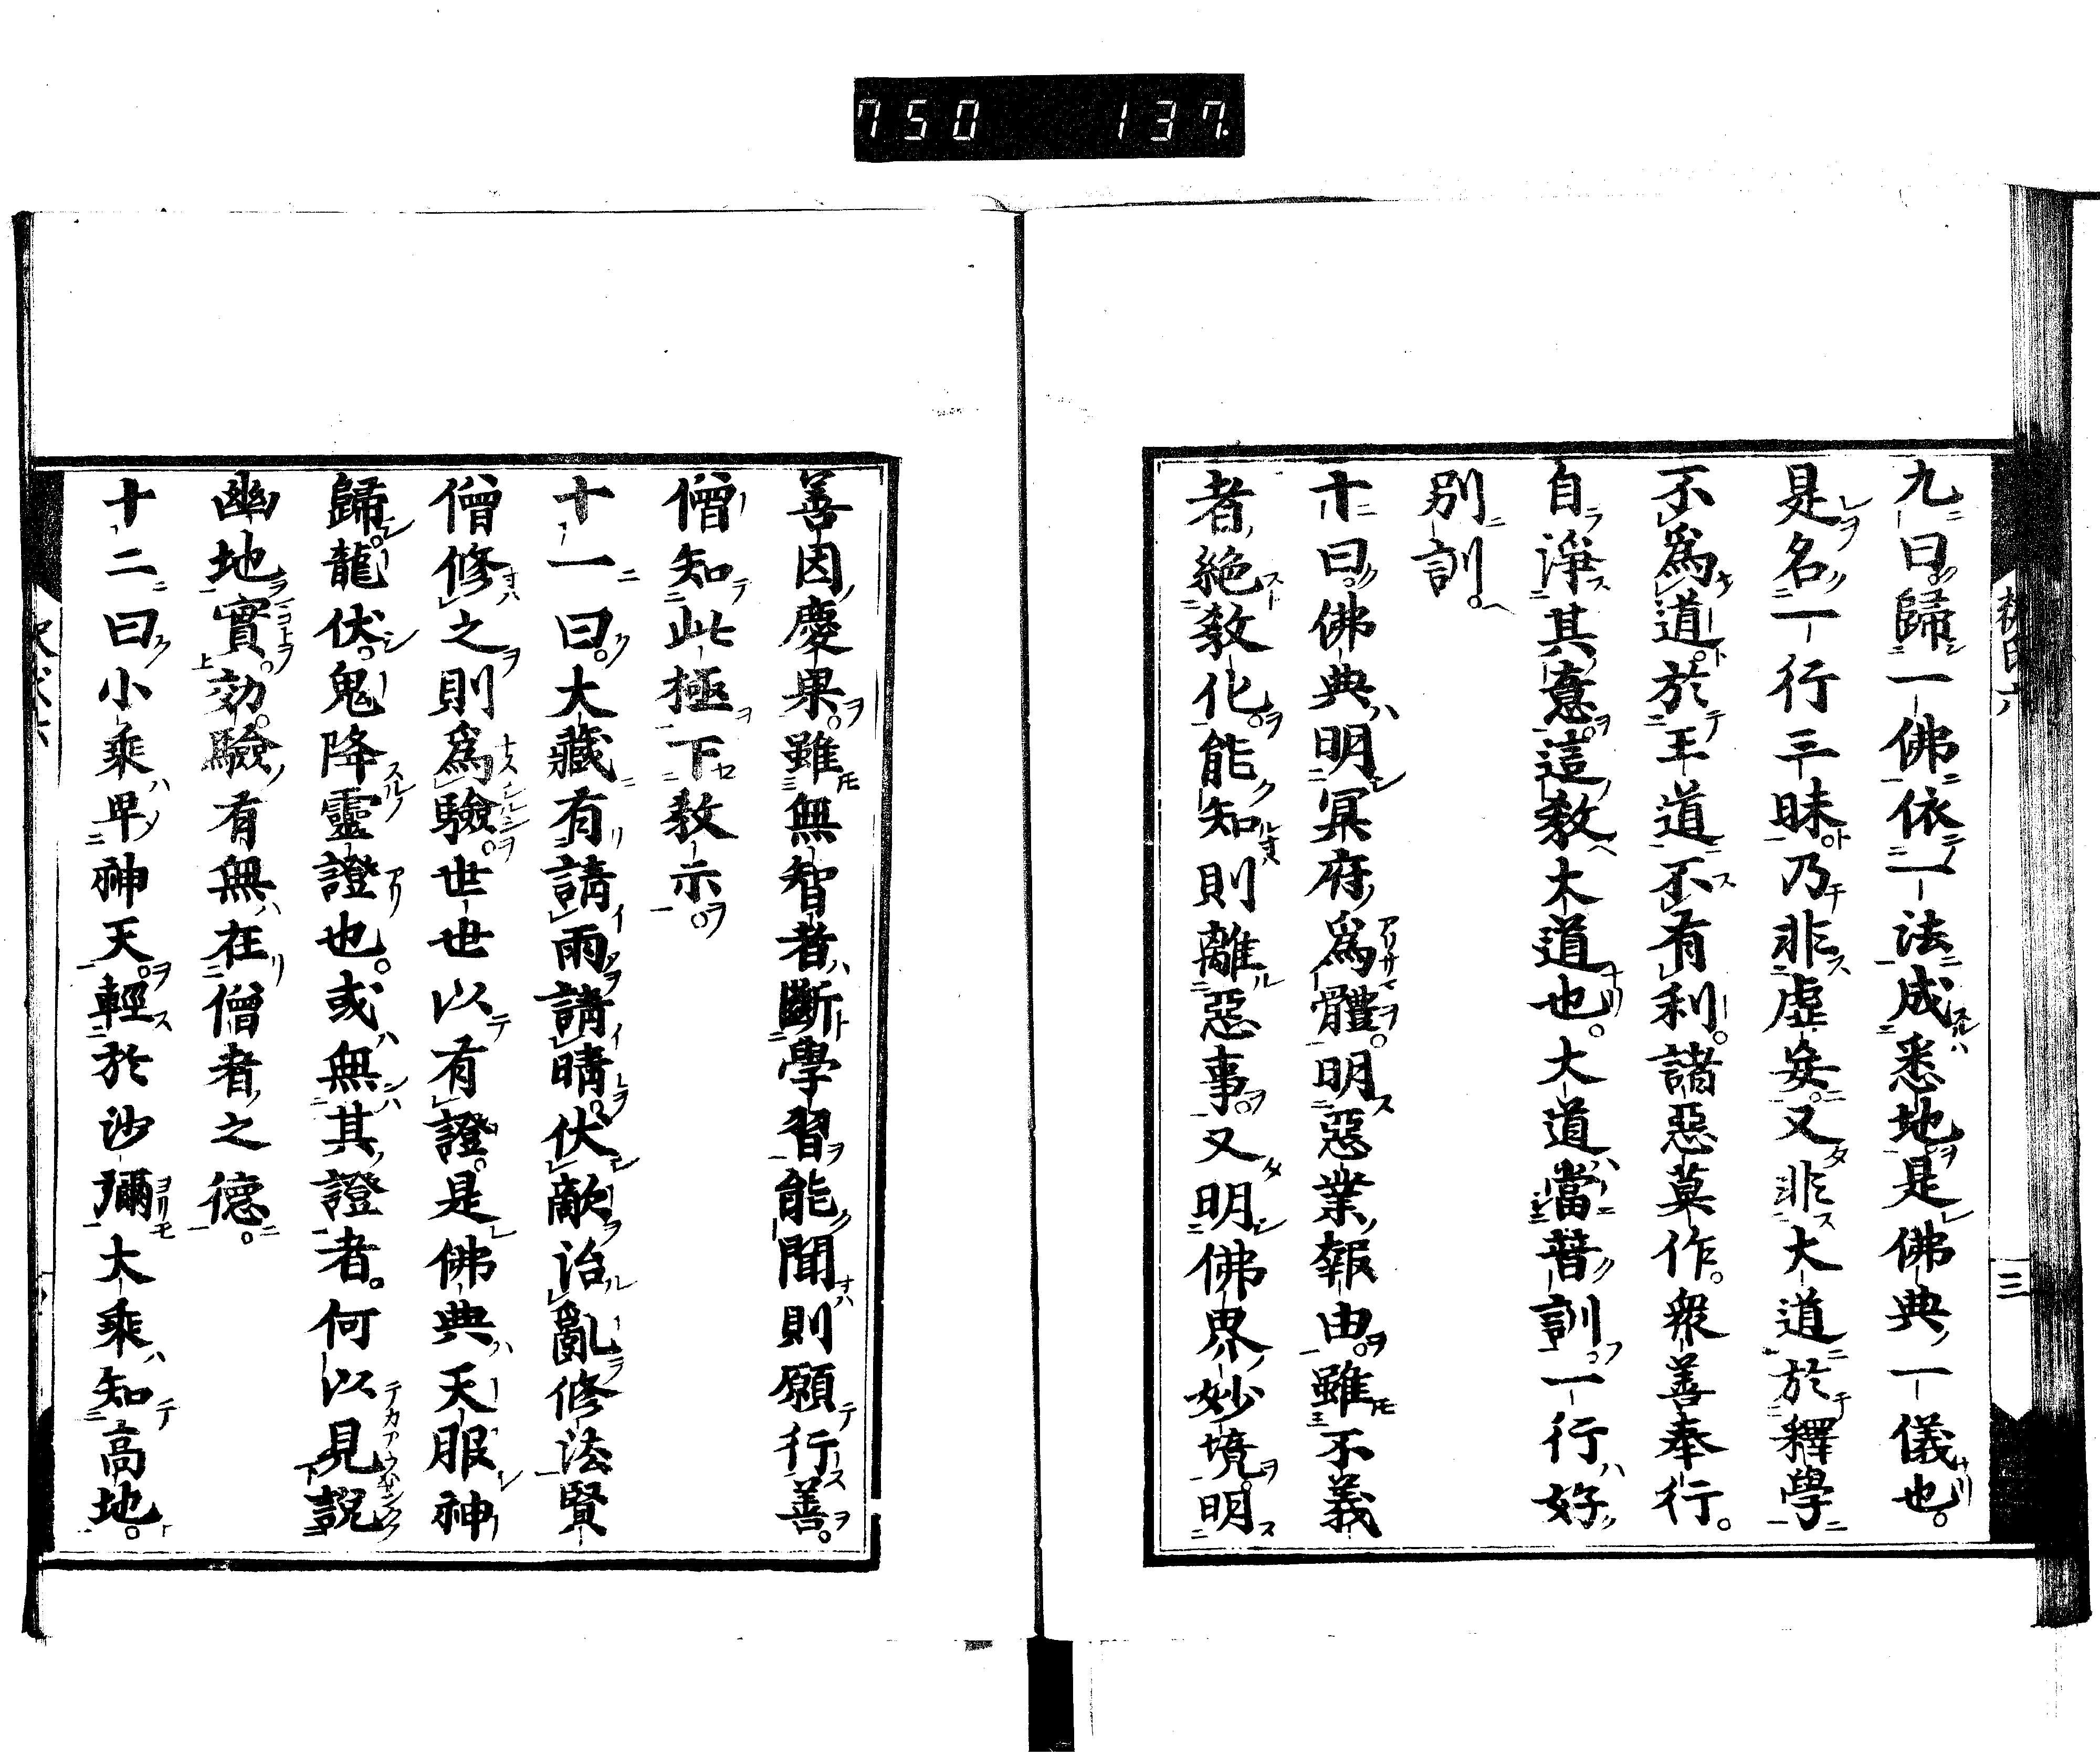 750 137
三
九曰歸一佛依一法成悉地是佛典一儀也。
是名一行三昧乃非虛妄。又非大道於釋學
不爲道。於王道不有利。諸惡莫作。衆善奉行。
自淨其意。這教大道也。大道當普訓。一行好
別訓。
十曰。佛典明冥府爲體。明惡業報由。雖不義
者絶教化。能知則離惡事。又明佛界妙境。明
善因慶果。雖無智者斷學習能聞則願行善。
僧知此極下教示。
十一曰。大藏有請雨請晴。伏敵治亂修法賢
僧修之則爲驗。世世以有證。是佛典天服神
歸。龍伏。鬼降靈證也。或無其證者。何以見説
幽地實。効驗有無在僧者之德。
十二曰小乘卑神天。輕於沙彌大乘知高地。